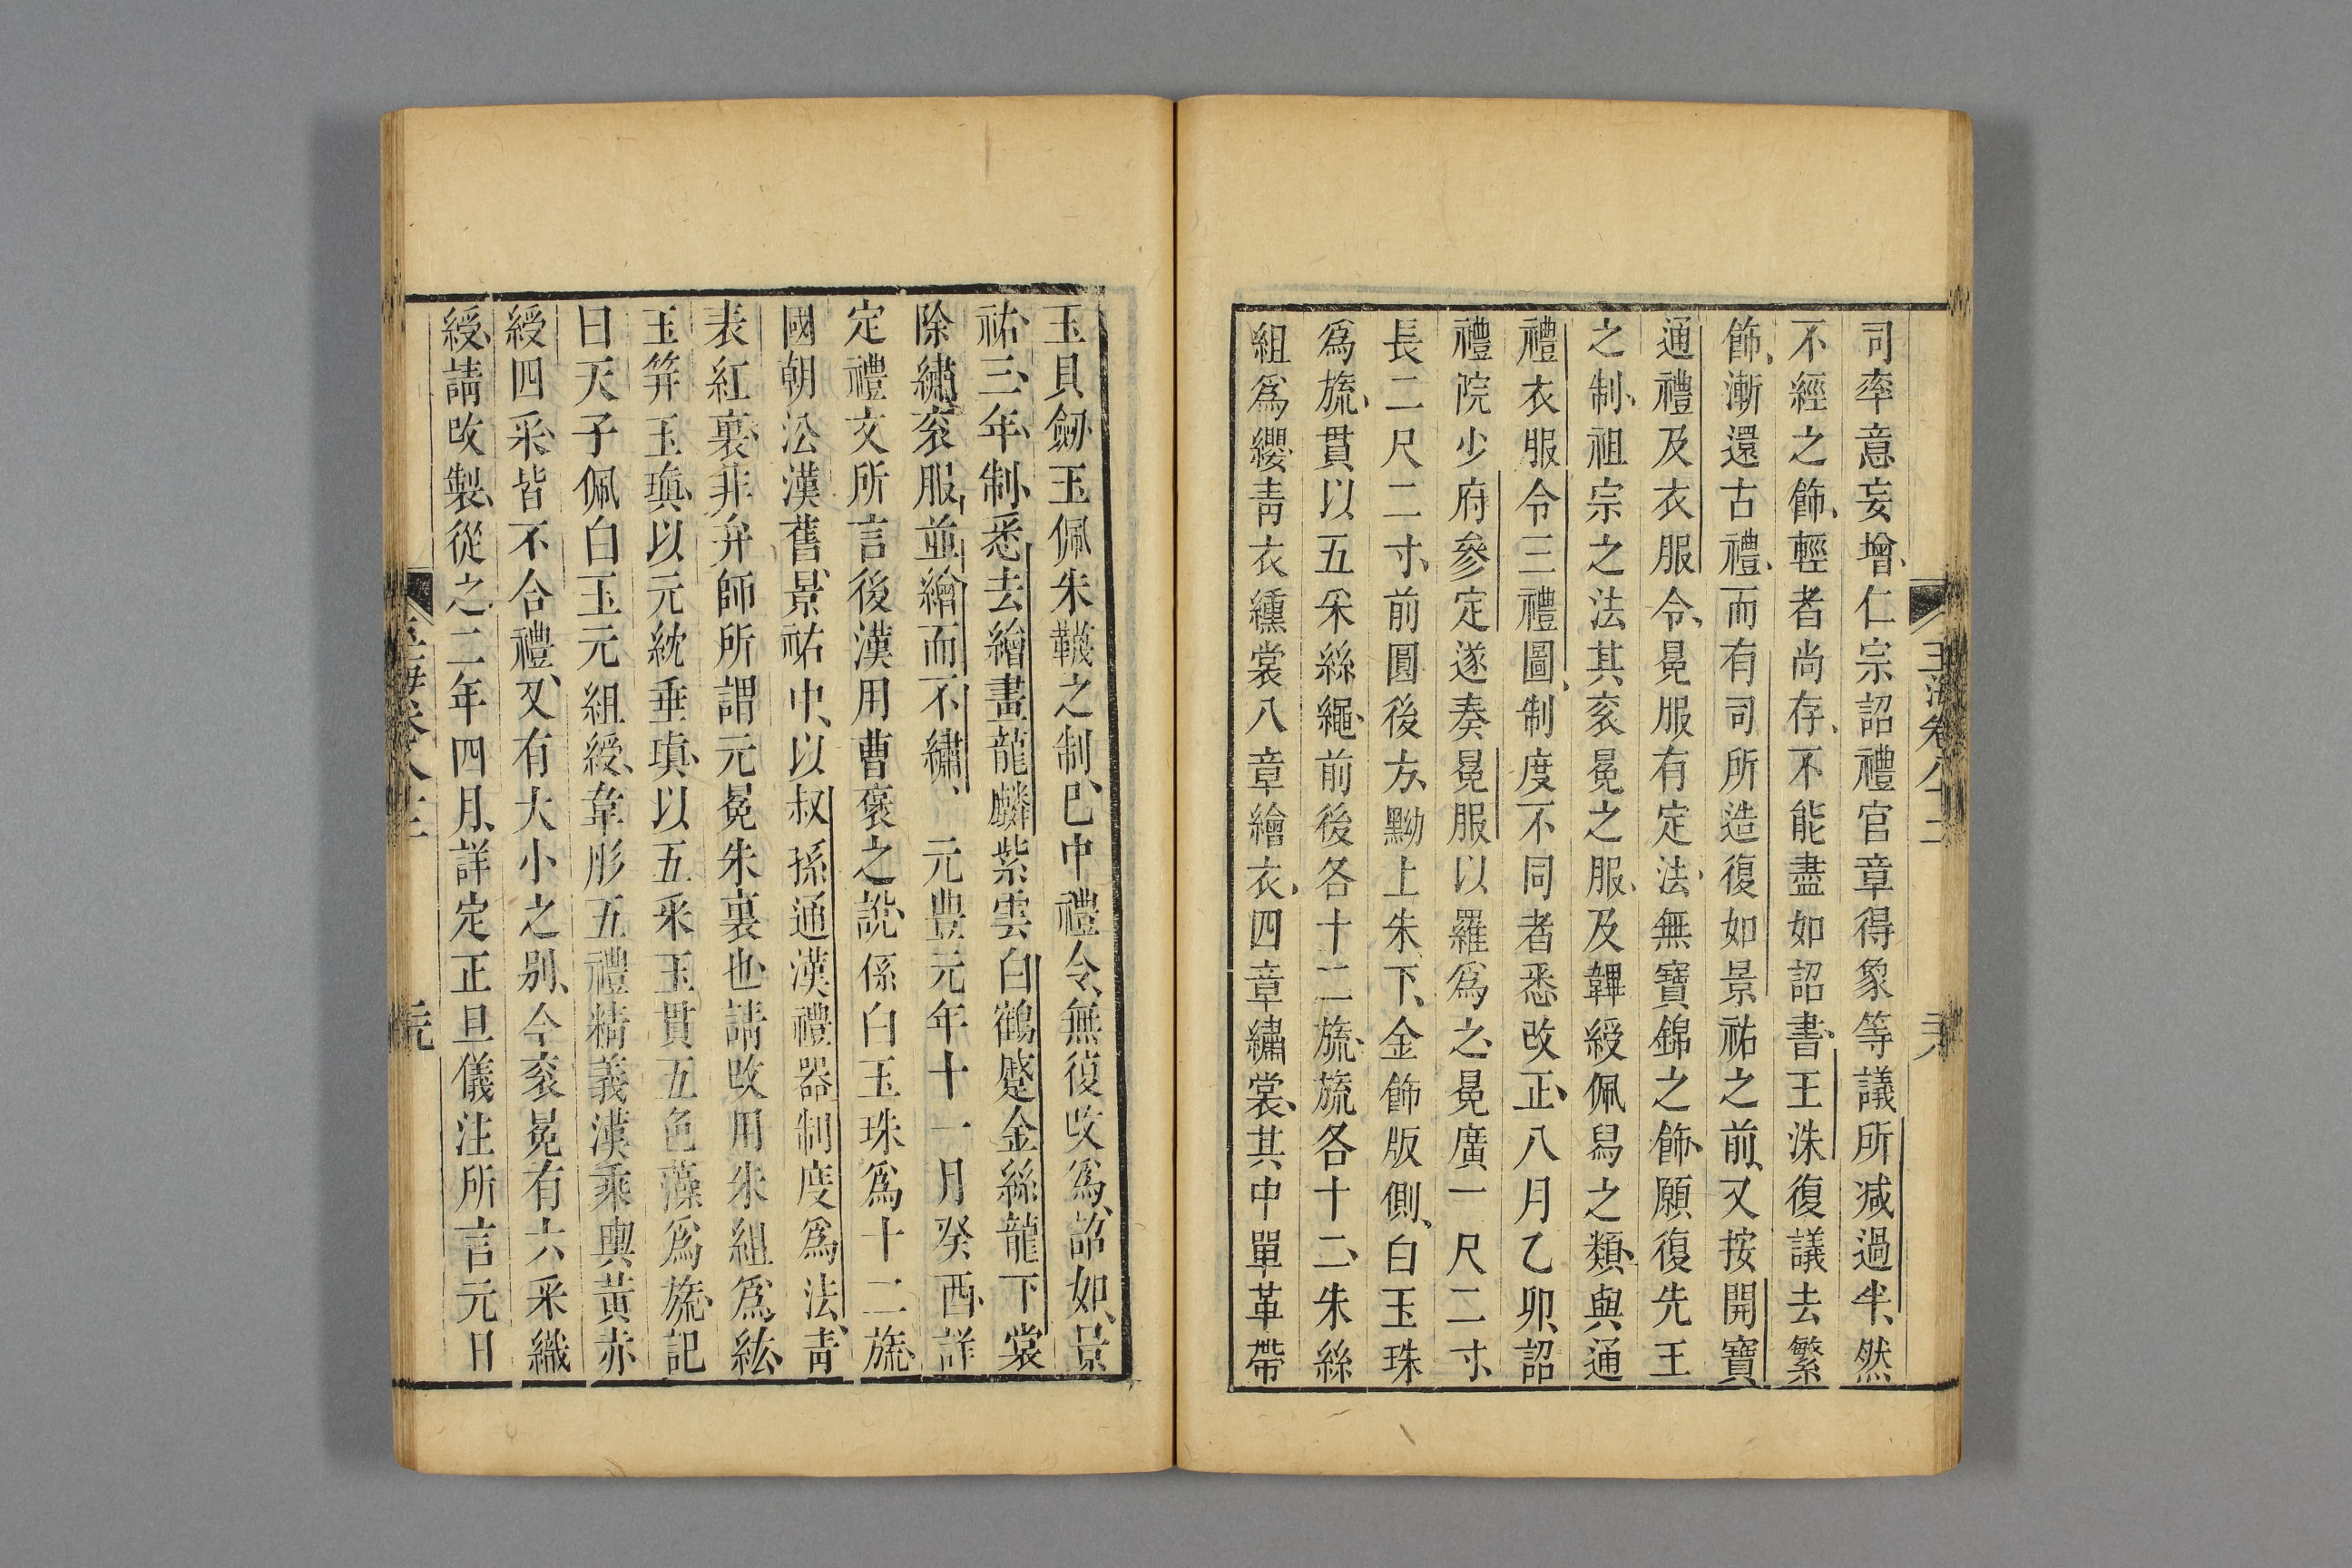 司率意妄增、仁宗詔禮官章得象等議所減過半、然
不經之飾、輕者尚存、不能盡如詔書、王洙復議去繁
飾、漸還古禮、而有司所造復如景祐之前、又按開寶
通禮及衣服令、冕服有定法、無寶錦之飾、願復先王
之制、祖宗之法其衮冕之服、及韠綬佩舄之類、與通
禮衣服令三禮圖、制度不同者悉改正、八月乙卯、詔
禮院少府參定、遂奏冕服以羅爲之、冕廣一尺二寸、
長二尺二寸、前圓後方、黝上朱下、金飾版側、白玉珠
爲旒、貫以五采絲繩、前後各十二旒、旒各十二、朱絲
組爲纓、青衣纁裳八章繪衣、四章繡裳、其中單革帶
玉海卷八十二
玉具劒玉佩朱韈之制、已中禮令、無復改爲、詔如、景
祐、三年、制、悉去繪畫龍麟紫雲白鶴蹙金絲龍下裳
除繡、衮服、並繪而不繡、元豐元年十一月癸酉、詳
定禮文所言後漢用曹褒之說、係白玉珠爲十二旒、
國朝㳂漢舊、景祐中、以叔孫通漢禮器制度爲法、青
表紅裏、非弁師所謂元冕朱裏也、請改用朱組爲紘、
玉笄玉瑱、以元紞垂瑱、以五采玉貫五色藻爲旒、記
曰天子佩白玉元組綬、韋彤五禮精義漢乘輿黃赤
綬四采、皆不合禮、又有大小之别、今衮冕有六采織
綬、請改製、從之二年四月、詳定正旦儀注所言元日